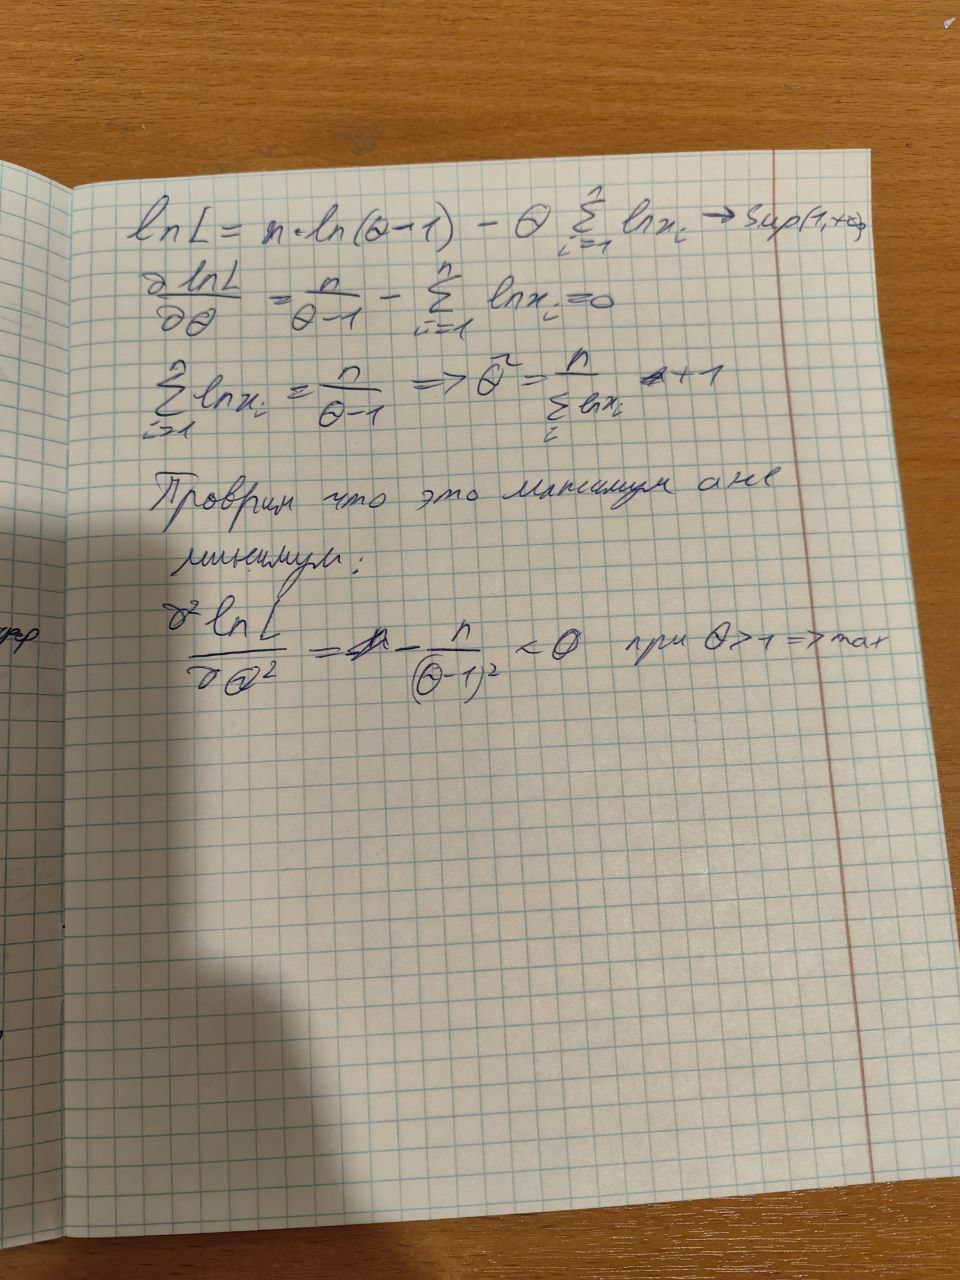 ln L = n·ln(θ-1) - θ ∑_{i=1}^{n} ln x_i → sup(1,+∞)
∂ ln L / ∂θ = n/(θ-1) - ∑_{i=1}^{n} ln x_i = 0
∑_{i=1}^{n} ln x_i = n/(θ-1) => θ̃ = n/(∑_i ln x_i) + 1
Проврим что это максимум а не
минимум:
∂² ln L / ∂θ² = - n/(θ-1)² < 0 при θ>1 => max